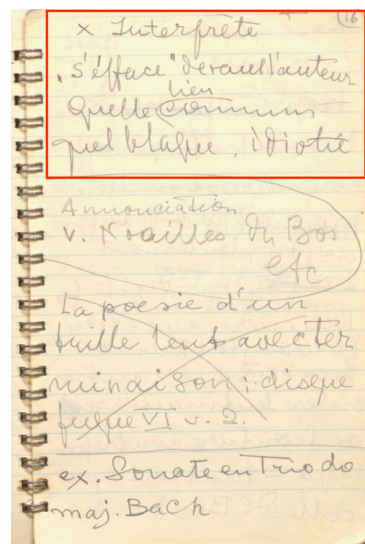 16
x Interprète
„s'éfface" devant l'auteur
lien
Quelle commun
quel blague, idiotie
Annonciation
v. Noailles Du Bos
etc
La poesie d'un
trille lent avec ter
minaison: disque
fugue VI v. 2.
ex. Sonate en Trio do
maj. Bach